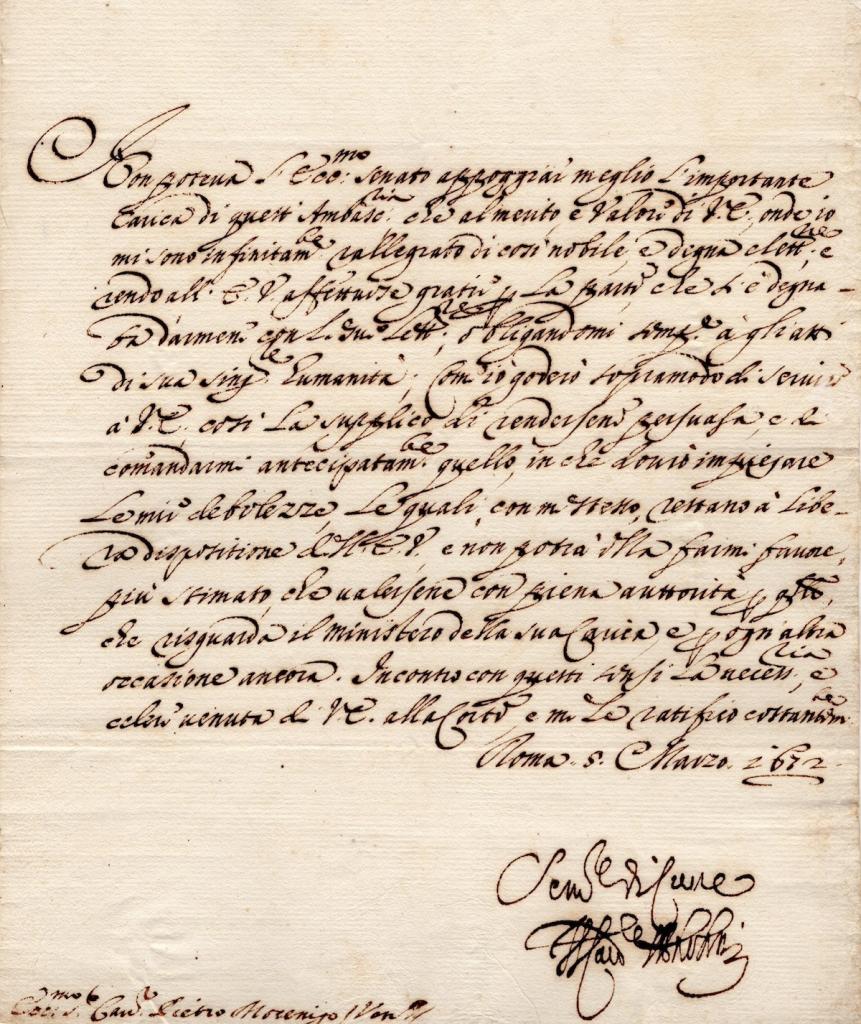 Non poteua l'Ecc.mo Senato appoggiar meglio l'importante
Carica di questi Ambasc.ria che al merito e Valore di V.E., onde io
mi sono infinitam.te rallegrato di così nobile, e degna elett.ne, e
rendo all' E. V. affettuose gratie p la parte, che s'è degna-
ta darmene con l. sua lett.ra, obligandomi semp.e à gli atti
di sua sing.le humanità; Com'io goderò sopramodo di seruire
à V.E., così la supplico di rendersene persuasa, e di
comandarmi antecipatam.te quello, in che dourò impiegare
le mie debolezze, le quali, con me stesso, restano à libe-
ra dispositione dell'E.V., e non potrà ella farmi fauore,
più stimato, che ualersene con piena auttorità p q.to,
che risguarda il ministero della sua Carica, e p ogn'altra
occasione ancora. Incontro con questi sensi la necess.ria, e
celere uenuta di V.E. alla Corte, e me le ratifico costantem.te
Roma 5 Marzo 1672
Seru.re di Cuore
Ecc.mo S. Cau.r Pietro Mocenigo / Ven.a